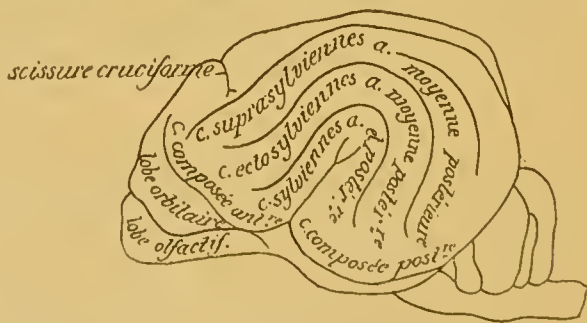 scissure cruciforme
c. suprasylviennes a. moyenne posterieure
c. ectosylviennes a. moyenne poster.re
c. sylviennes a. et poster.re
c. composée ant.re
lobe orbitaire
lobe olfactif.
c. composée post.re